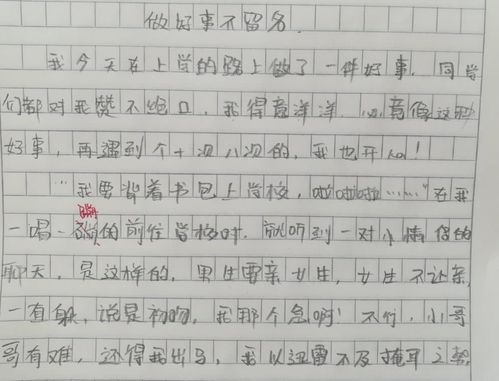 做好事不留名
我今天在上学的路上做了一件好事,同学
们都对我赞不绝口,我得意洋洋,心竟像这种
好事,再遇到个十次八次的,我也开心!
"我要背着书包上学校,啦啦啦啦……"在我
一唱一的前往学校时,就听到一对小情侣的
聊天,是这样的,男生要亲女生,女生不让亲,
一直躲,说是初吻,我那个急啊!不行,小哥
哥有难,还得我出马,我以迅雷不及掩耳之势